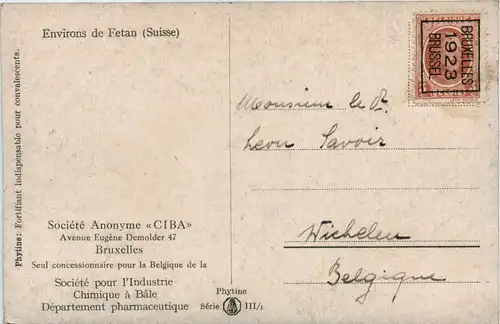 Environs de Fetan (Suisse)
Phytine: Fortifiant indispensable pour convalescents.
Société Anonyme «CIBA»
Avenue Eugène Demolder 47
Bruxelles
Seul concessionnaire pour la Belgique de la
Société pour l'Industrie
Chimique à Bâle
Département pharmaceutique
Phytine
Série III/1
BRUXELLES
1923
BRUSSEL
Monsieur le Dr.
Leon Savoir
Wichelen
Belgique